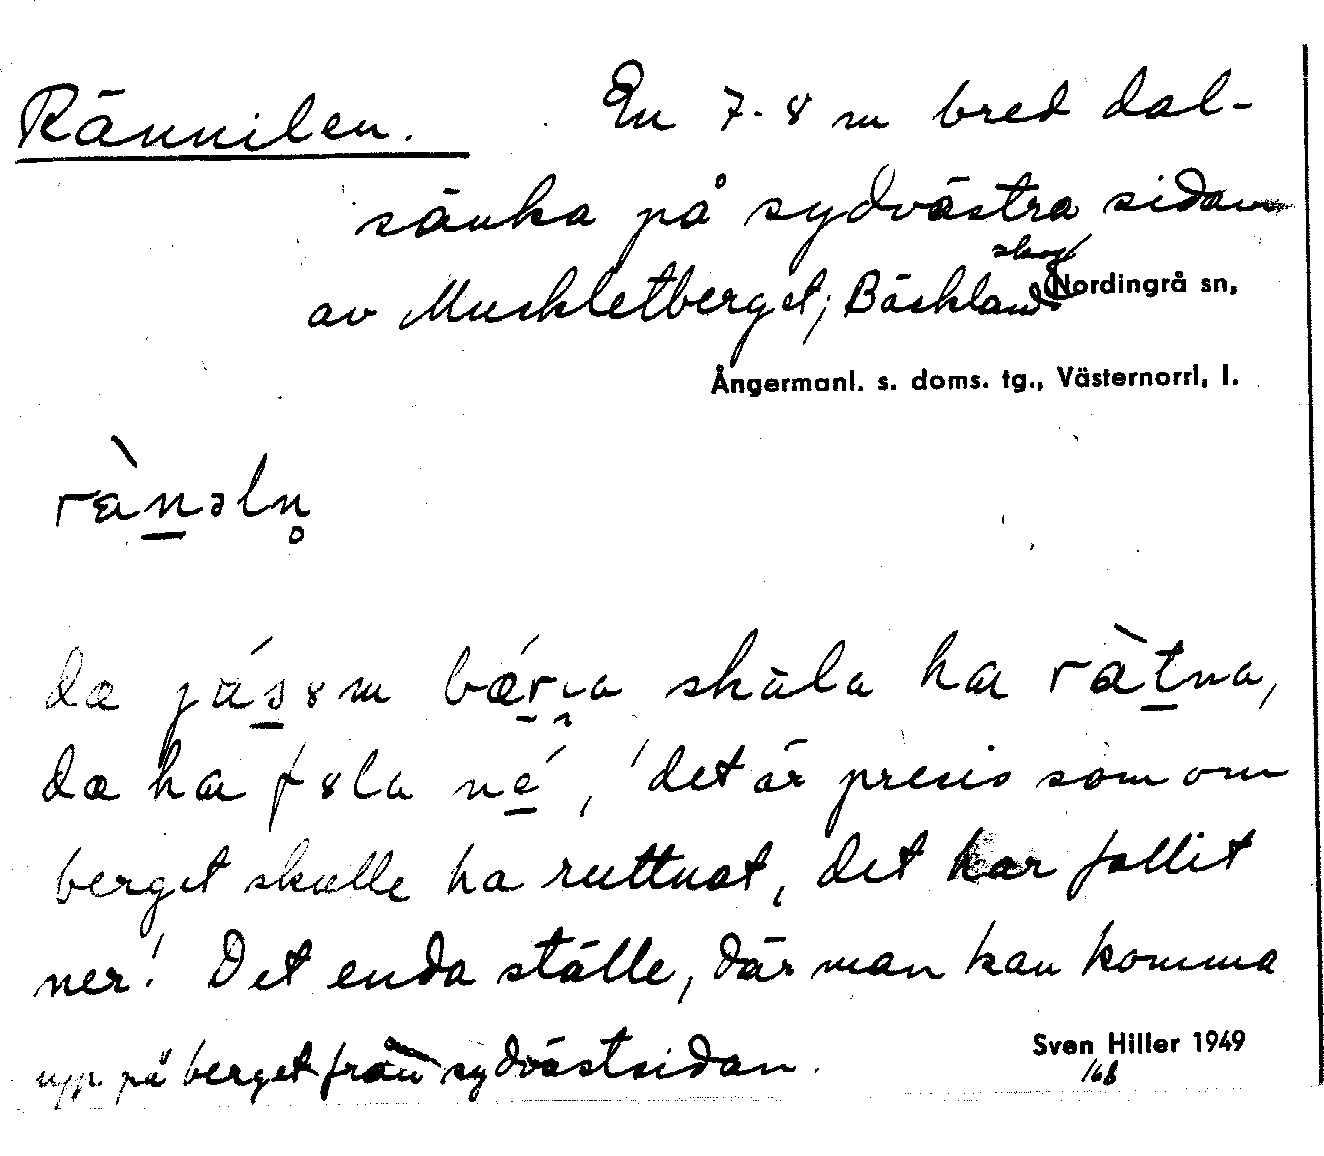 Rännilen. En 7-8 m bred dal-
sänka på sydvästra sidan
skog
av Muskletberget; Bäskland Nordingrå sn,
Ångermanl. s. doms. tg., Västernorrl. l.
rànəln̥
dæ ha fɞla né, 'det är precis som om
berget skulle ha ruttnat, det har fallit
ner'. Det enda ställe, där man kan komma
upp på berget från sydvästsidan.
Sven Hiller 1949
16/8